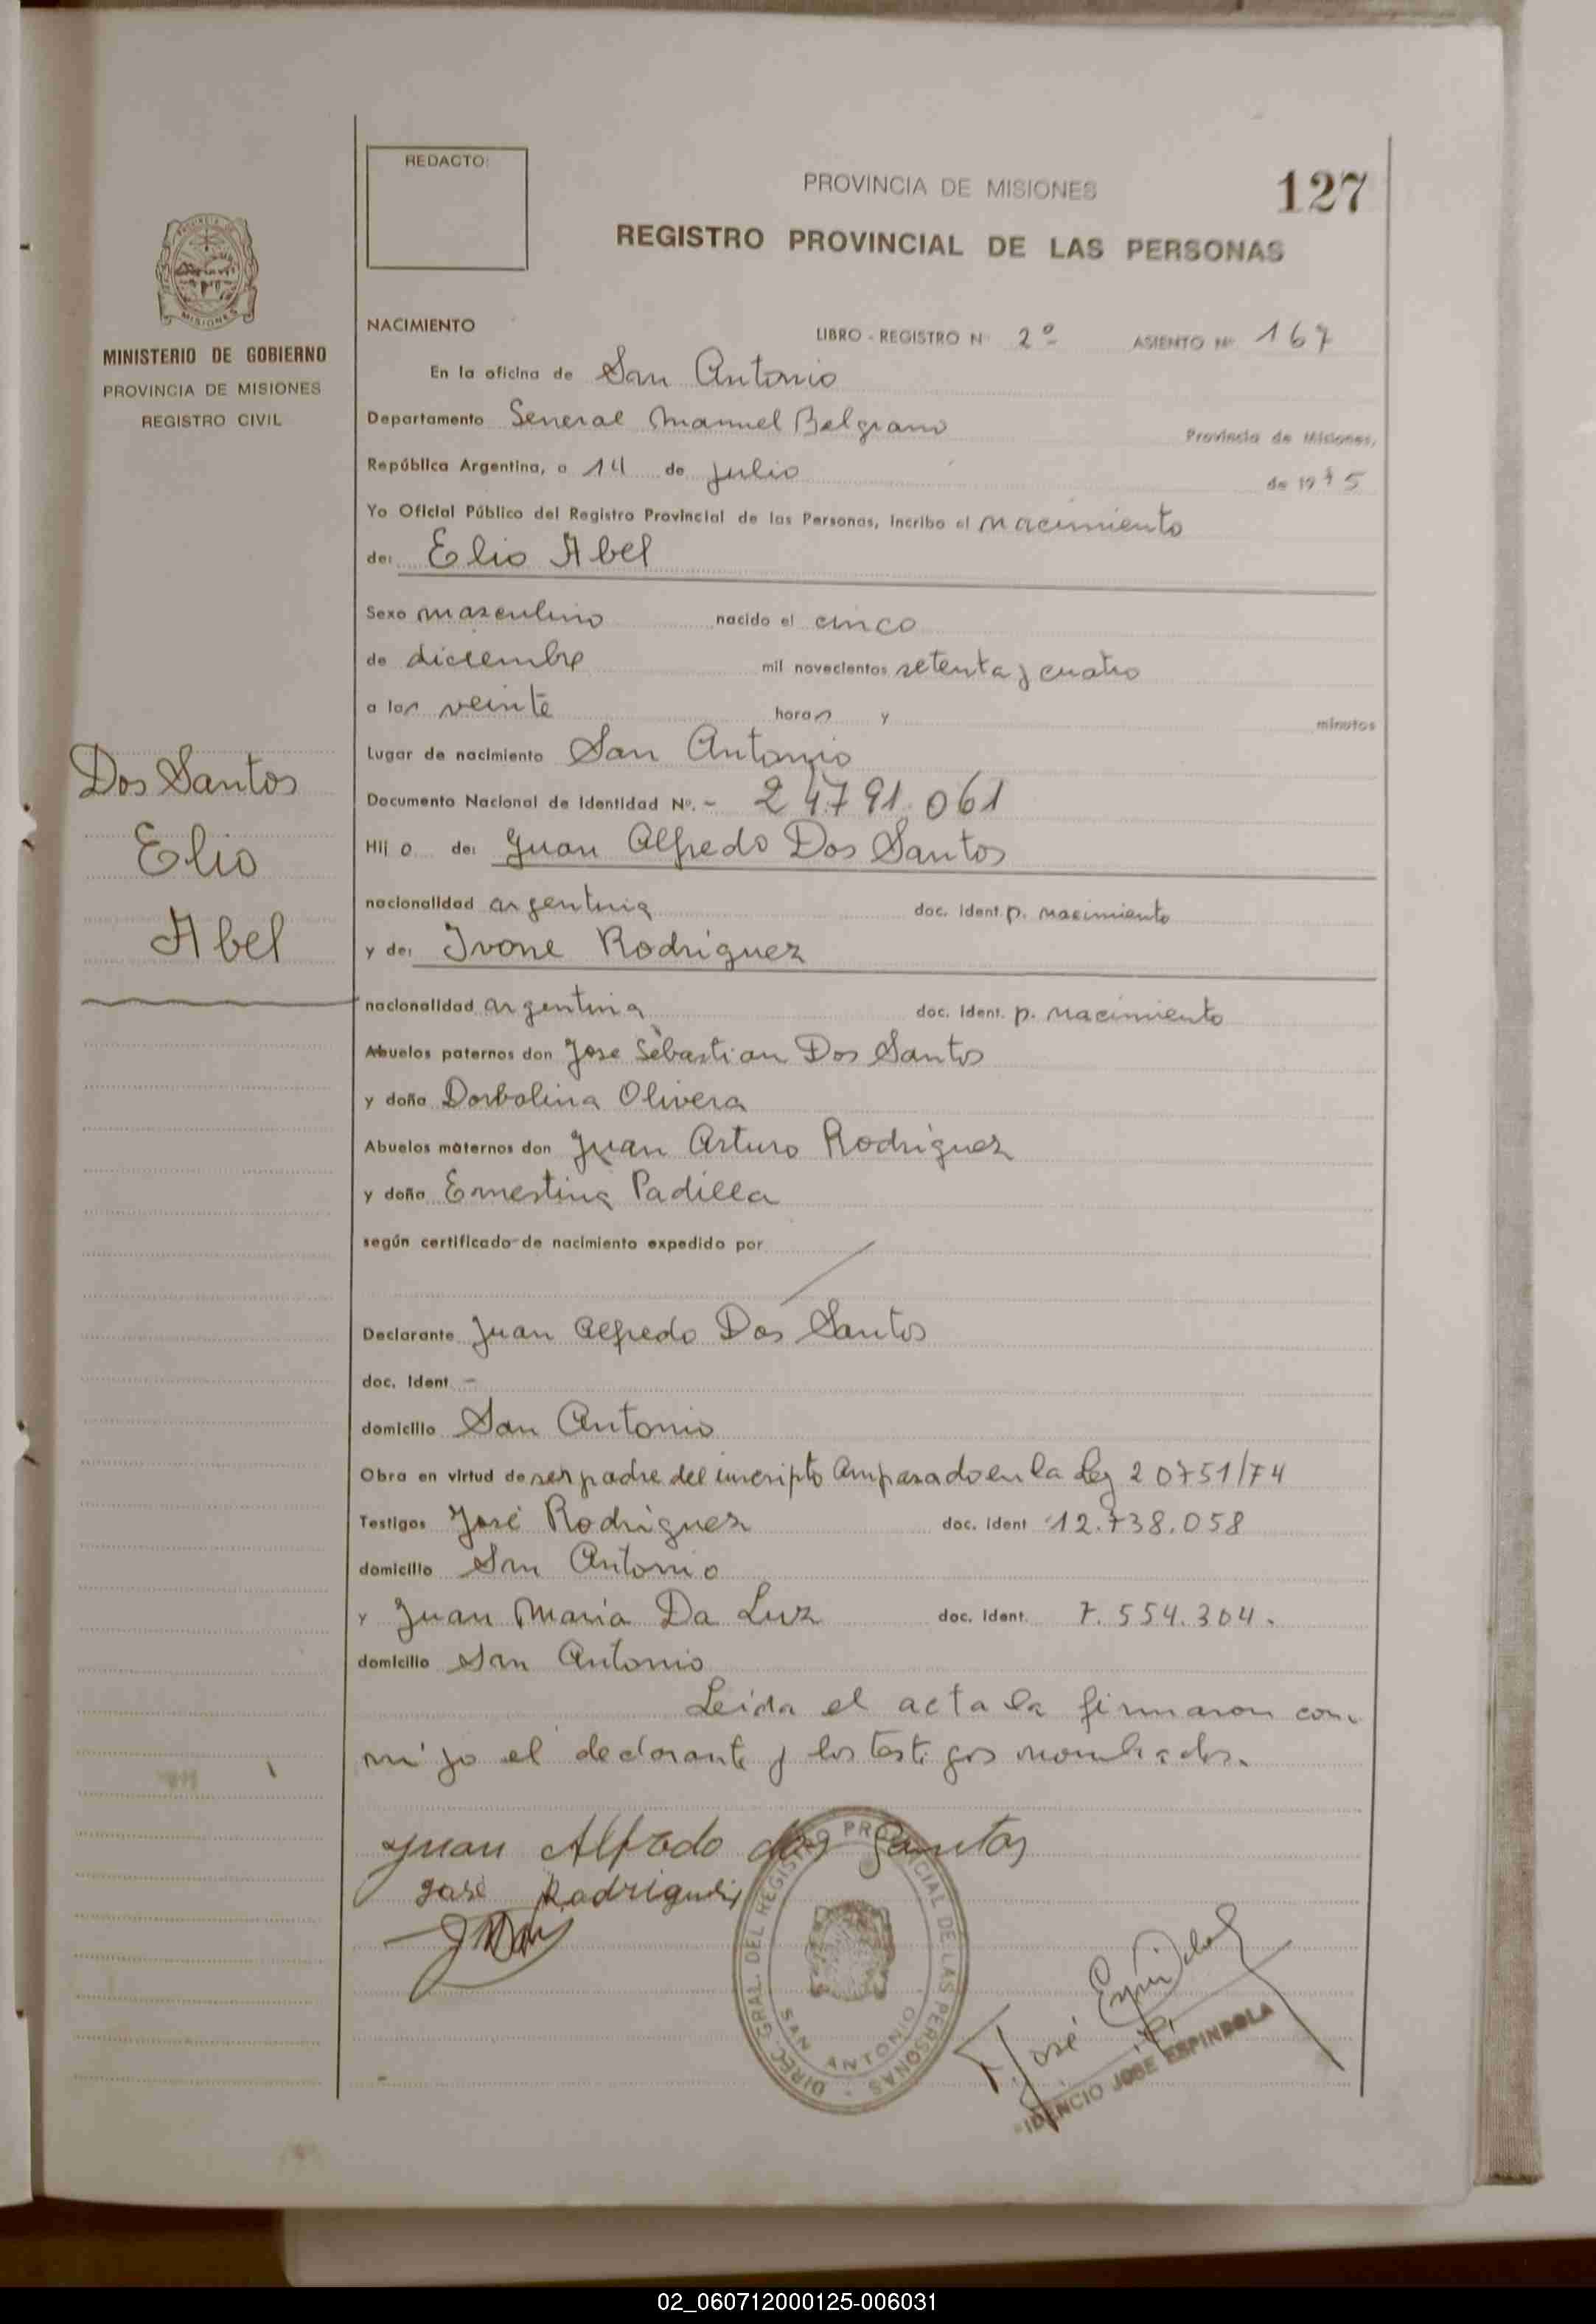 REDACTO:
PROVINCIA DE MISIONES
127
REGISTRO PROVINCIAL DE LAS PERSONAS
MISIONES
MINISTERIO DE GOBIERNO
PROVINCIA DE MISIONES
REGISTRO CIVIL
NACIMIENTO LIBRO - REGISTRO Nº 2º ASIENTO Nº 167
En la oficina de San Antonio
Departamento General Manuel Belgrano Provincia de Misiones,
República Argentina, a 14 de julio de 1975
Yo Oficial Público del Registro Provincial de las Personas, incribo el nacimiento
de: Elio Abel
Sexo masculino nacido el cinco
de diciembre mil novecientos setenta y cuatro
a las veinte horas y minutos
Lugar de nacimiento San Antonio
Documento Nacional de Identidad Nº.- 24.791.061
Dos Santos
Elio
Abel
Hijo de: Juan Alfredo Dos Santos
nacionalidad argentina doc. ident. p. nacimiento
y de: Ivone Rodriguez
nacionalidad argentina doc. ident. p. nacimiento
Abuelos paternos don Jose Sebastian Dos Santos
y doña Dorbolina Olivera
Abuelos maternos don Juan Arturo Rodriguez
y doña Ernestina Padilla
según certificado de nacimiento expedido por
Declarante Juan Alfredo Dos Santos
doc. Ident. -
domicilio San Antonio
Obra en virtud de ser padre del inscripto Amparado en la Ley 20751/74
Testigos José Rodriguez doc. ident 12.738.058
domicilio San Antonio
y Juan Maria Da Luz doc. ident. 7.554.304.
domicilio San Antonio
Leida el acta la firmaron con-
migo el declarante y los testigos nombrados.
Juan Alfredo dos Santos
José Rodriguez
DIREC. GRAL. DEL REGISTRO PROVINCIAL DE LAS PERSONAS
SAN ANTONIO
José Espindola
IDENCIO JOSE ESPINDOLA
02_060712000125-006031